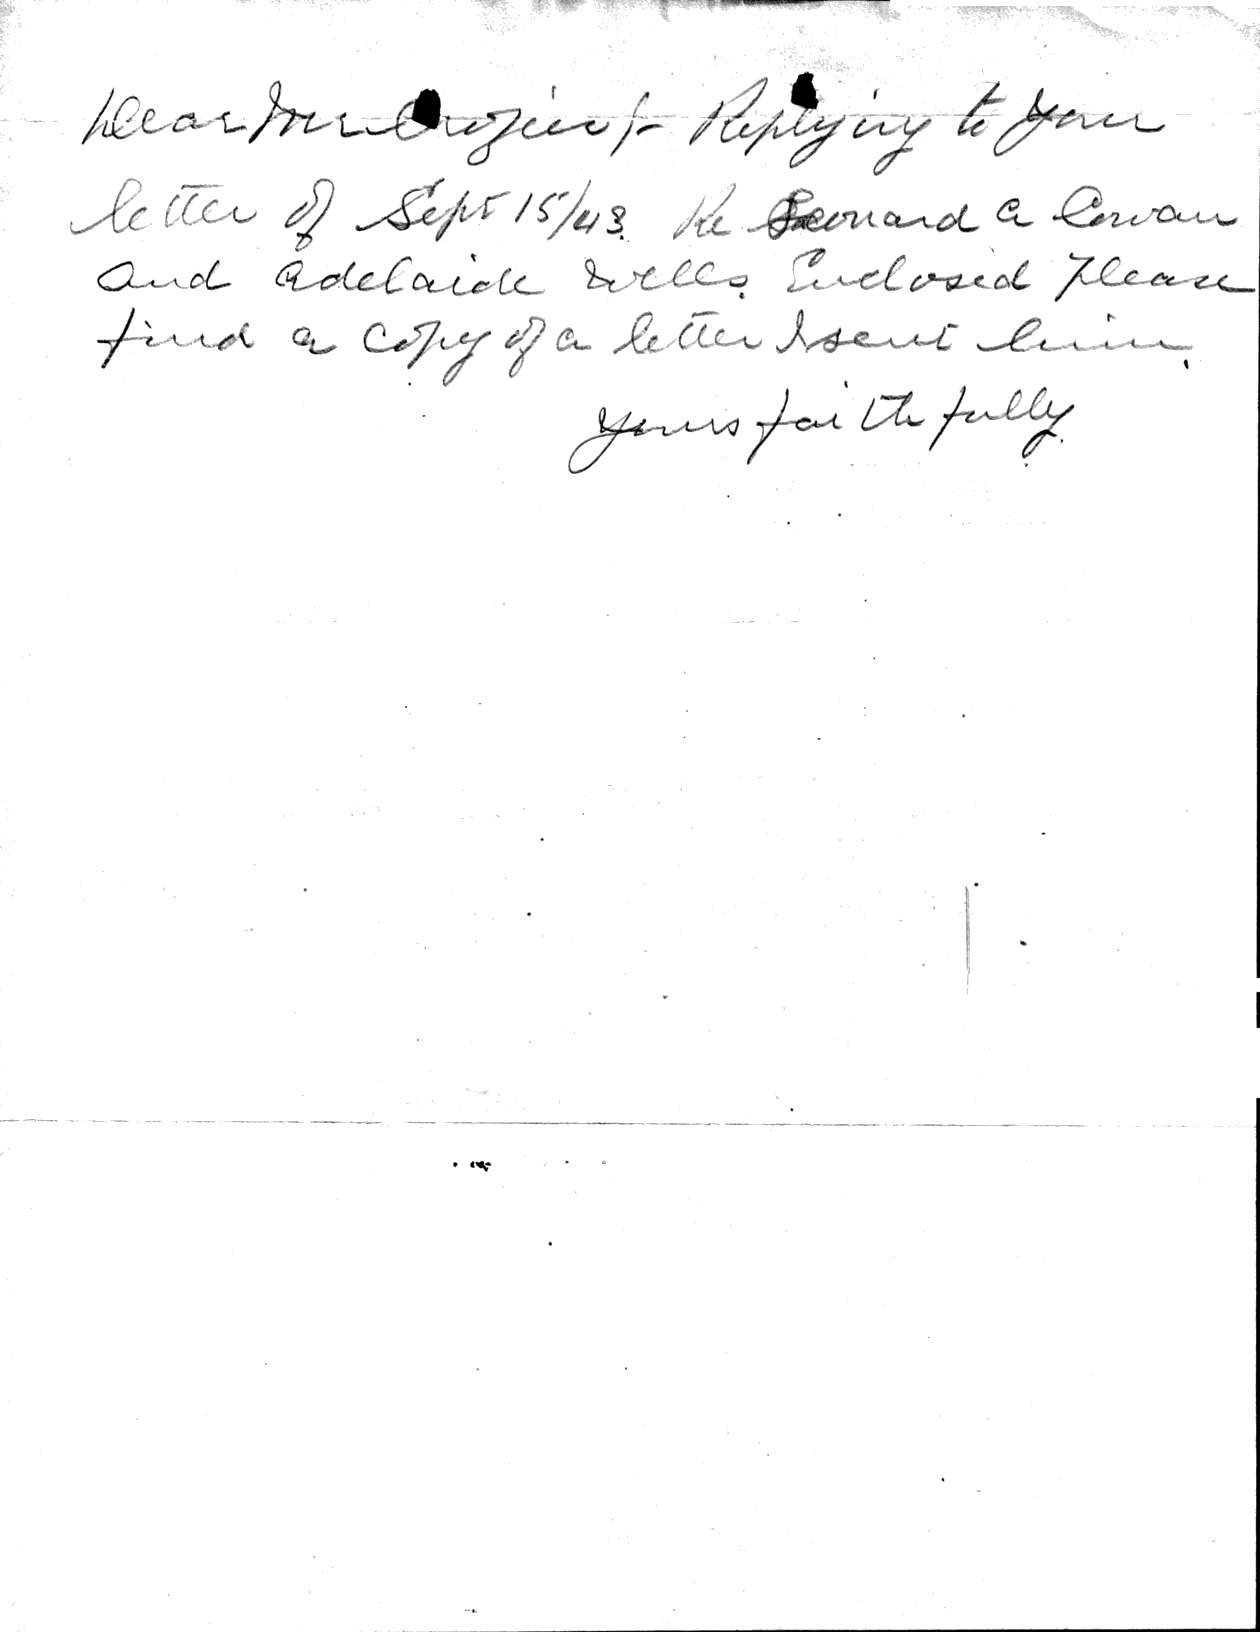 Dear Mr Crozier :- Replying to your
letter of Sept 15/43. Re Leonard A Cowan
and Adelaide Wells. Enclosed Please
find a copy of a letter I sent him.
Yours faithfully